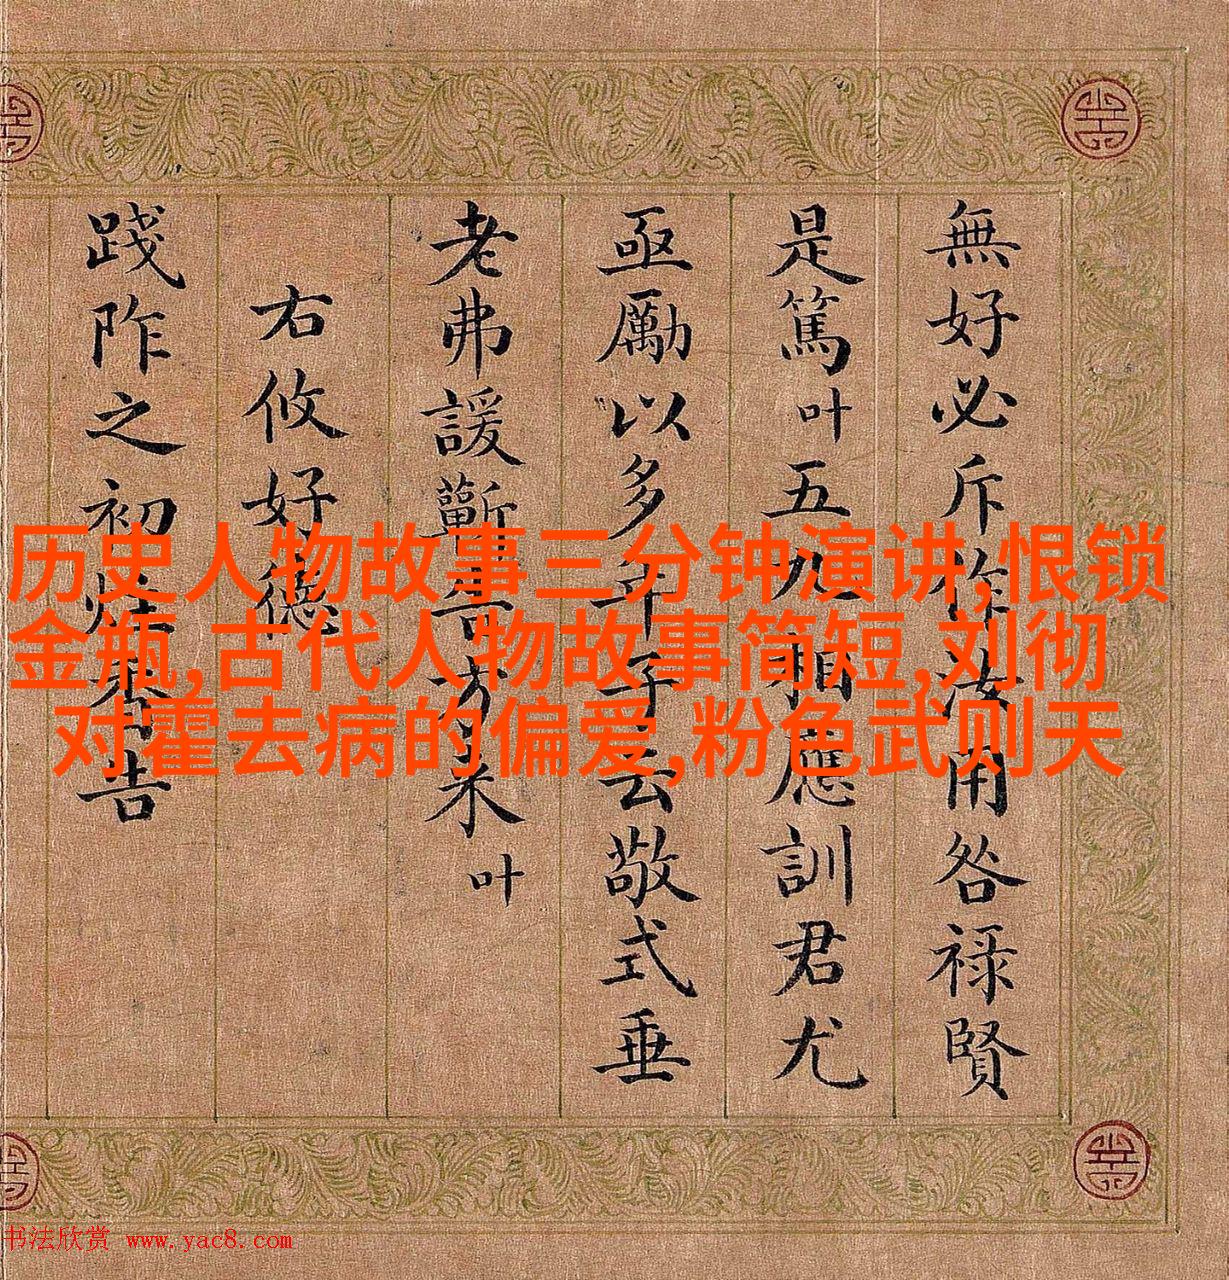 無好必斥作汝用咎禄賢
是篤叶五九相應訓君尤
亟勵以多年子云敬式垂
老弗諼蘄告方来叶
右攸好德
踐阼之初炷香告
历史人物故事三分钟演讲,恨锁
金瓶,古代人物故事简短,刘彻
对霍去病的偏爱,粉色武则天
书法欣赏 www.yac8.com